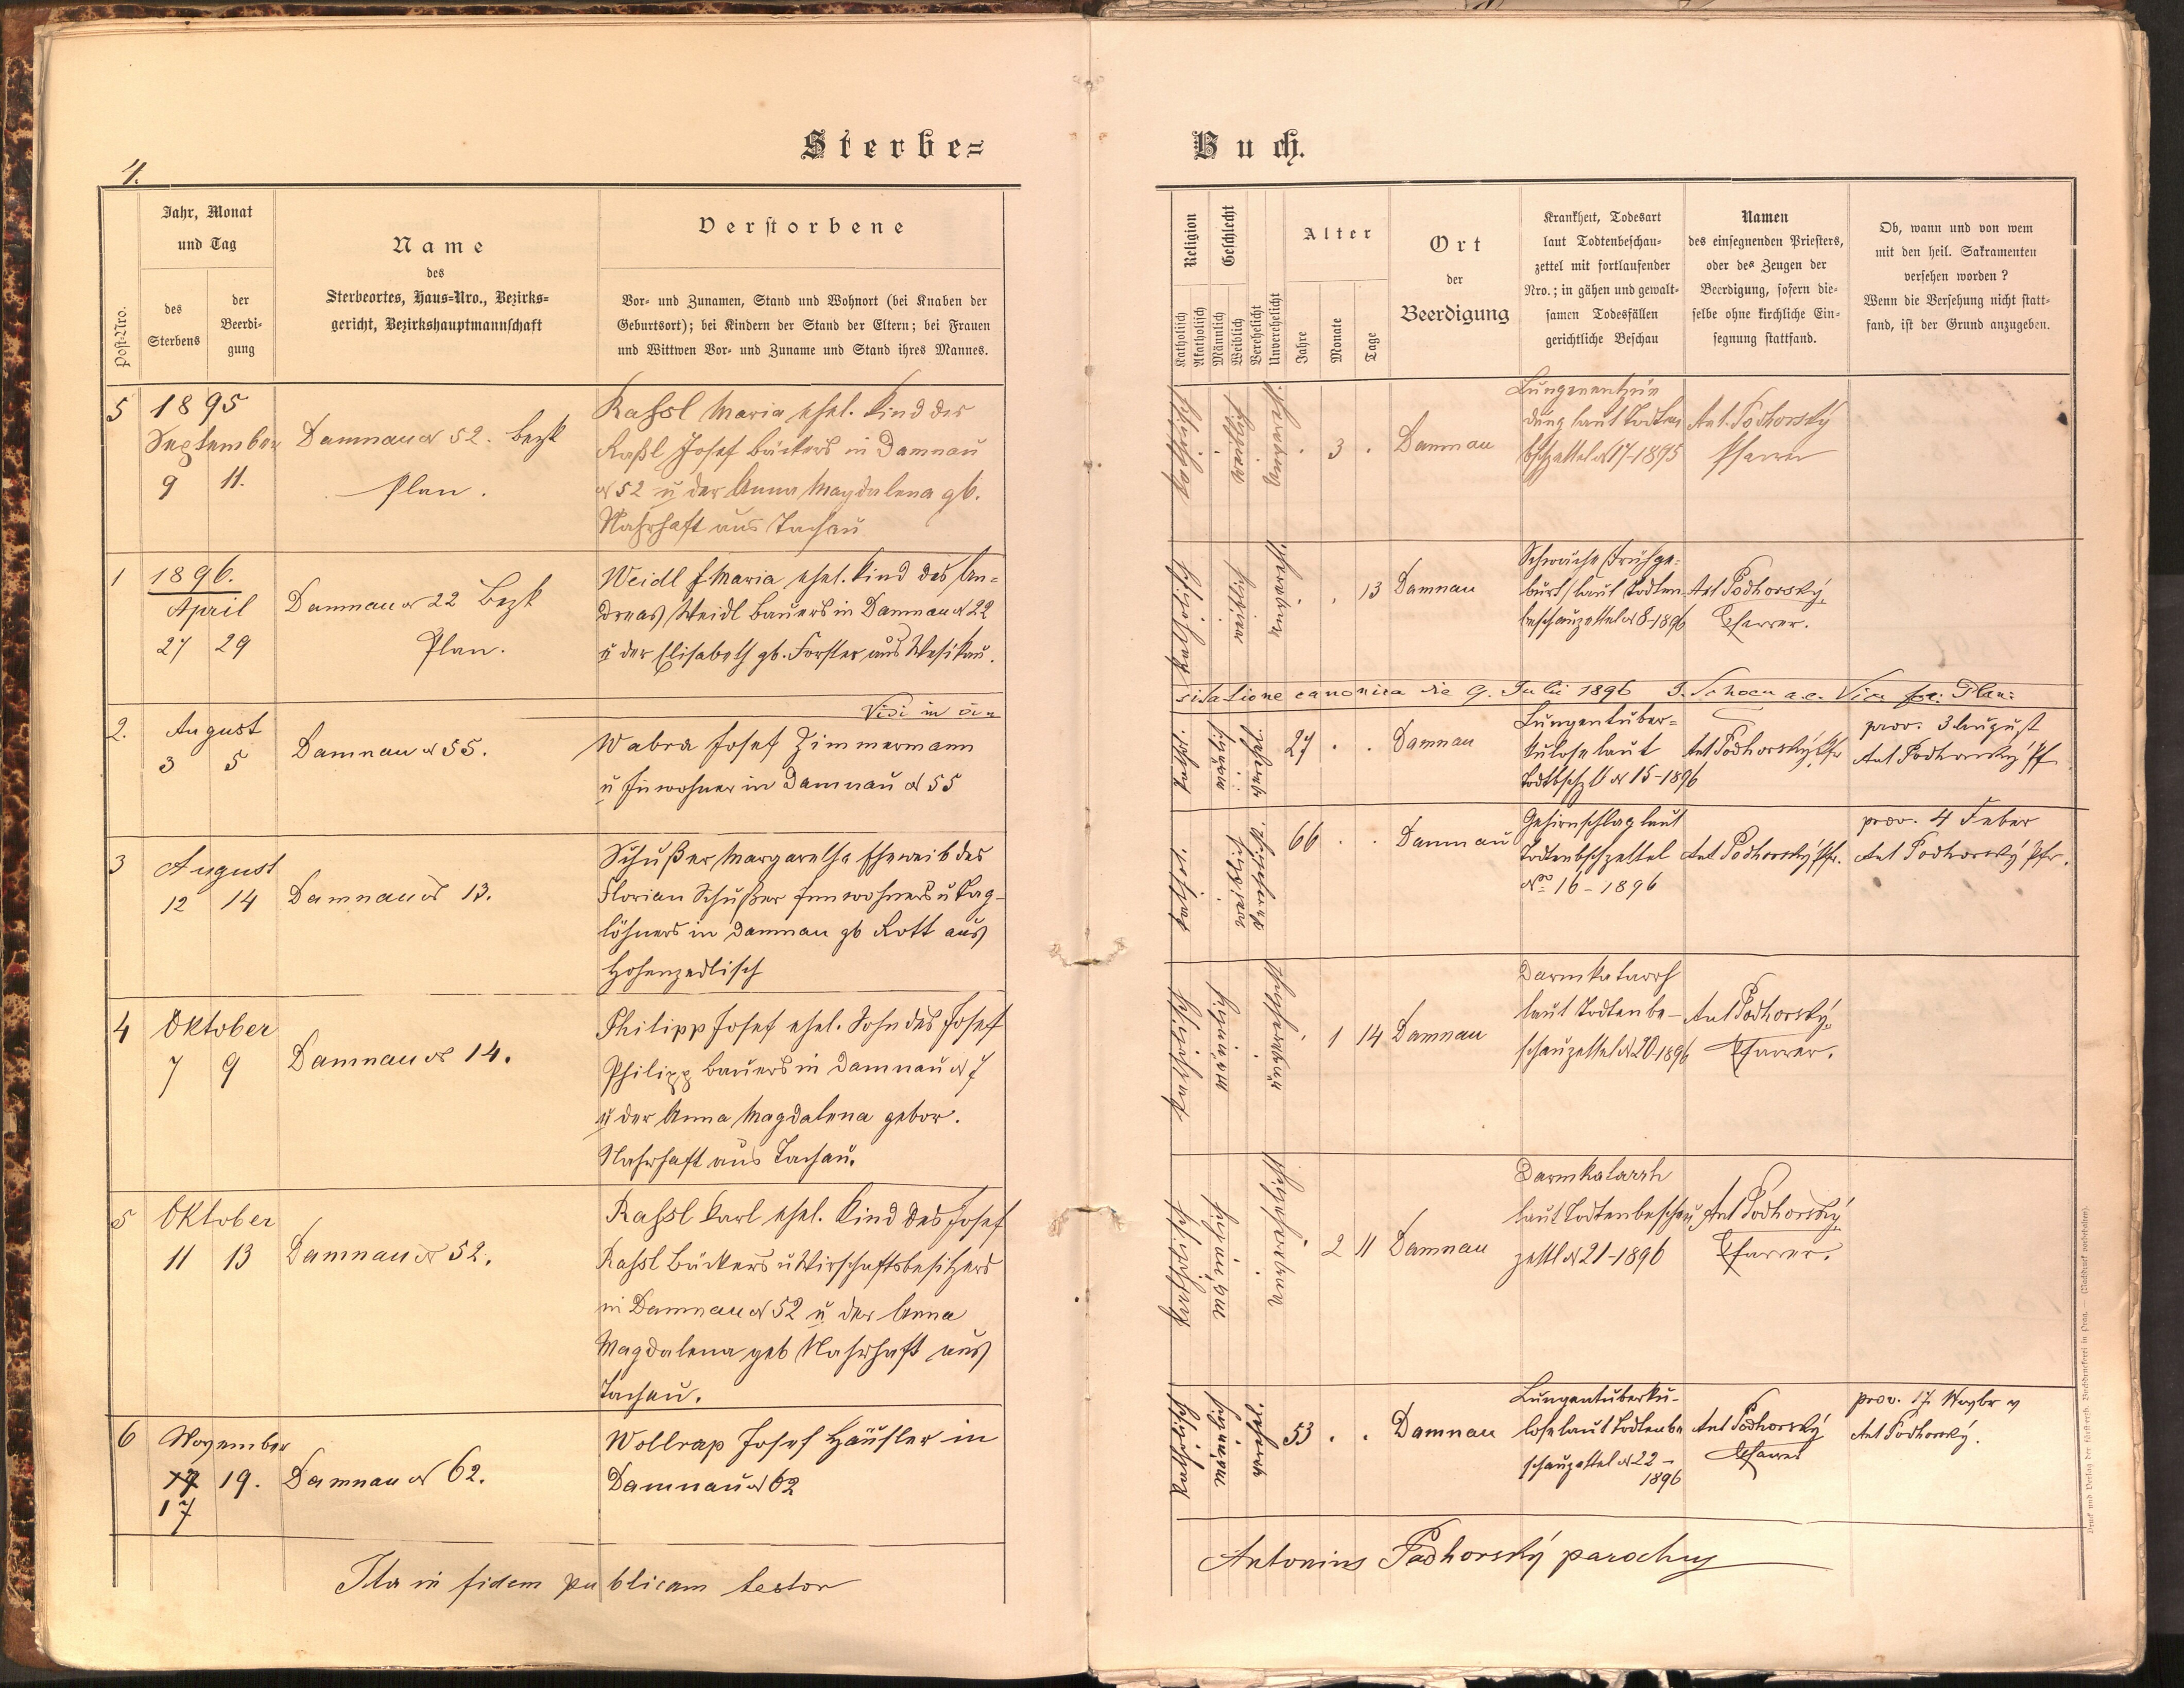 4.
Sterbe=
Buch.
Post-Nro.
Jahr, Monat
und Tag
des
Sterbens
der
Beerdi-
gung
Name
des
Sterbeortes, Haus=Nro., Bezirks=
gericht, Bezirkshauptmannschaft
Verstorbene
Vor- und Zunamen, Stand und Wohnort (bei Knaben der
Geburtsort); bei Kindern der Stand der Eltern; bei Frauen
und Wittwen Vor- und Zuname und Stand ihres Mannes.
Religion
Katholisch
Akatholisch
Geschlecht
Männlich
Weiblich
Verehelicht
Unverehelicht
Alter
Jahre
Monate
Tage
Ort
der
Beerdigung
Krankheit, Todesart
laut Todtenbeschau-
zettel mit fortlaufender
Nro.; in gähen und gewalt-
samen Todesfällen
gerichtliche Beschau
Namen
des einsegnenden Priesters,
oder des Zeugen der
Beerdigung, sofern die-
selbe ohne kirchliche Ein-
segnung stattfand.
Ob, wann und von wem
mit den heil. Sakramenten
versehen worden?
Wenn die Versehung nicht statt-
fand, ist der Grund anzugeben.
5
1895
September
9 11.
Damnau N 52. Bezk
Plan.
Raßl Maria ehel. Kind des
Raßl Josef Bäckers in Damnau
N 52 u der Anna Magdalena gb.
Nahrhaft aus Tachau
katholisch
weiblich
3
Damnau
Lungenentzün
dung laut Todten
bschzettel N 17-1895
Ant. Podhorský
Pfarrer
1
1896.
April
27 29
Damnau N 22 Bezk
Plan.
Weidl Maria ehel. Kind des An=
dreas Weidl Bauers in Damnau N 22
u der Elisabeth gb. Forster aus
katholisch
weiblich
13 Damnau
Schwäche /Frühge=
burt/ laut Todten
beschauzettel N 8-1896
Ant Podhorský
Pfarrer.
Vidi in
sitatione canonica die 9. Julii 1896
2.
August
3 5
Damnau N 55.
Wabra Josef Zimmermann
u Inwohner in Damnau N 55
kathol.
männlich
verehel.
27
Damnau
Lungentuber=
kulose laut
N 15-1896
Ant Podhorský Pfr
prov. 3 August
Ant Podhorský Pf
3
August
12 14
Damnau N 13.
Schußer Margaretha Eheweib des
Florian Schußer Innwohners u Tag-
löhners in Damnau gb Rott aus
Hohenzedlisch
kathol.
weiblich
verehelicht
66
Damnau
Gehirnschlag laut
Todtenbschzettel
No 16-1896
Ant Podhorský Pfr.
prov. 4 Feber
Ant Podhorský Pfr.
4
Oktober
7 9
Damnau N 14.
Philipp Josef ehel. Sohn des Josef
Philipp Bauers in Damnau N 7
u der Anna Magdalena gebor.
Nahrhaft aus Tachau.
katholisch
männlich
unverehelicht
1 14 Damnau
Darmkatarrh
laut Todtenbe-
schauzettel N 20-1896
Ant Podhorský
Pfarrer.
5
Oktober
11 13
Damnau N 52.
Raßl Karl ehel. Kind des Josef
Raßl Bäckers u Wirschaftsbesitzers
in Damnau N 52 u der Anna
Magdalena geb Nahrhaft aus
Tachau.
katholisch
männlich
unverehelicht
2 11 Damnau
Darmkatarrh
laut Todtenbeschau
zettl N 21-1896
Ant Podhorský
Pfarrer.
6
November
17
19.
Damnau N 62.
Wollrap Josef Häusler in
Damnau N 62
katholisch
männlich
verehel.
53
Damnau
Lungentuberku-
lose laut Todtenbe
schauzettel N 22-
1896
Ant Podhorský
Pfarrer
prov. 17.
Ant Podhorský.
Ita in fidem publicam testor
Antonius Podhorský parochus